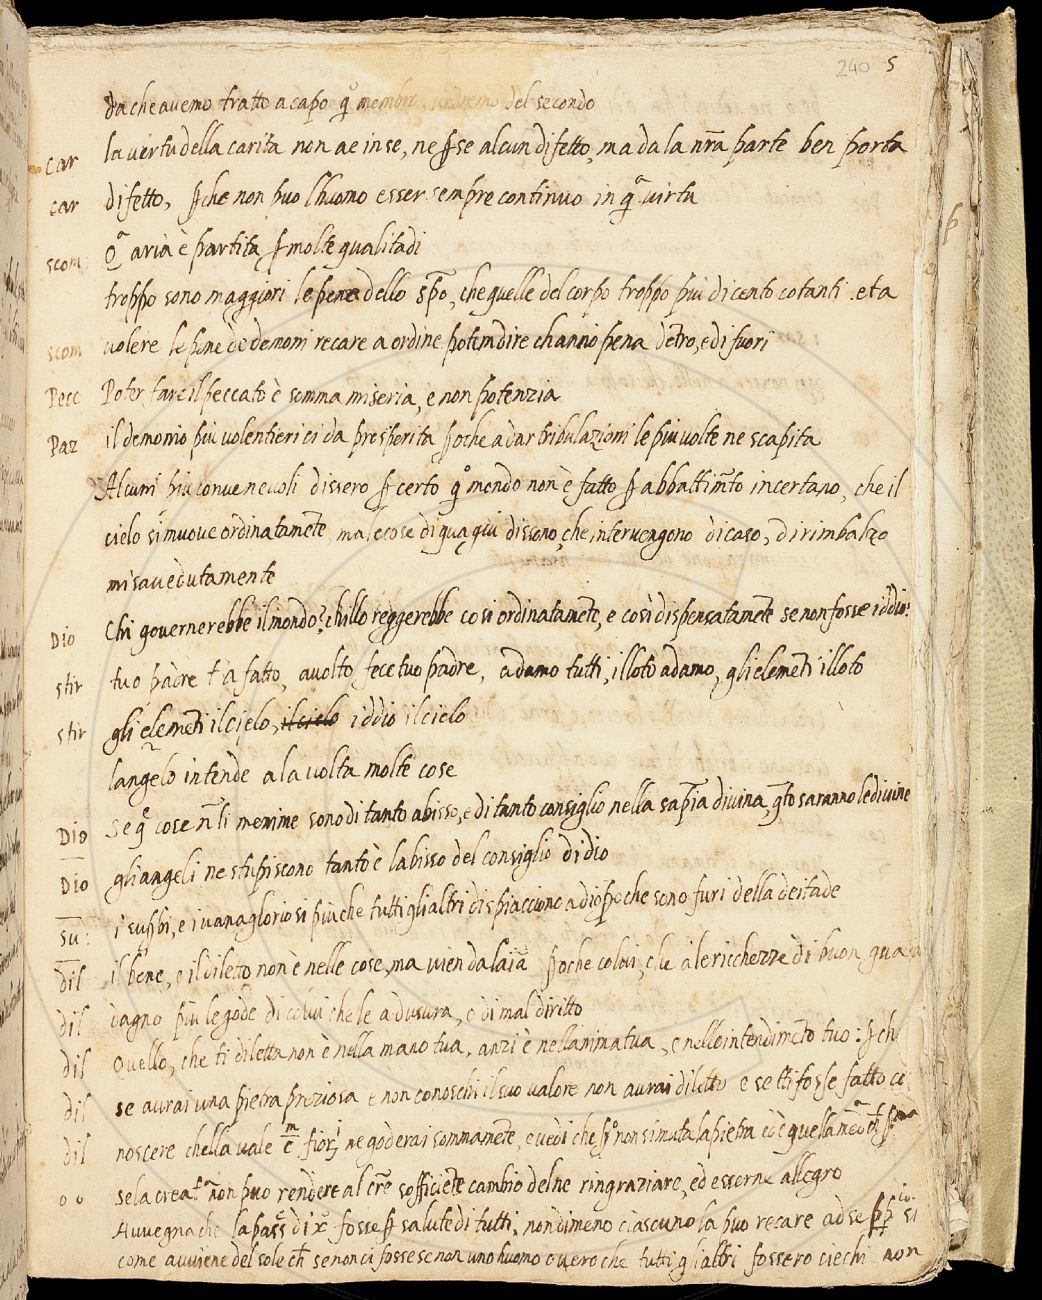 240 5
da che avemo tratto a capo q̊ membro, vedremo del secondo
car la virtu della carita non ae in se, ne ꝑ se alcun difetto, ma da la nr̃a parte ben porta
car difetto, ꝑche non puo lhuomo esser sempre continuo in qᵃ virtu
scom Qᵃ aria è partita ꝑ molte qualitadi
troppo sono maggiori le pene dello spõ, che quelle del corpo troppo piu di cento cotanti. eta
scom volere le pene de demoni recare a ordine potem dire channo pena dẽtro, e di fuori
Pecc Poter fare il peccato è somma miseria, e non potenzia
Paz il demonio piu volentieri ci da prosperita ꝑoche a dar tribulazioni le piu volte ne scapita
Alcuni piu convenevoli dissero ꝑ certo q̊ mondo non è fatto ꝑ abbattimẽto incertano, che il
cielo si muove ordinatamẽte, ma le cose di qua qui dissono, che intervengono di caso, di rimbalzo
misavedutamente
Dio Chi governerebbe il mondo? chillo reggerebbe cosi ordinatamẽte, e così dispensatamẽte se non fosse iddio?
stir tuo padre t'a fatto, avolto fece tuo padre, adamo tutti, illoto adamo, gli elemẽti illoto
stir gli elemẽti il cielo, il cielo iddio il cielo
langelo intende a la volta molte cose
Dio Se q̊ cose nr̃li menime sono di tanto abisso, e di tanto consiglio nella sapr̃ia divina, qto saranno le divine
Dio gli angeli ne stupiscono tanto è labisso del consiglio di dio
su: i suꝑbi, e i vanagloriosi piu che tutti gli altri dispiacciono a dio ꝑoche sono furi della deitade
dil il bene, e il diletto non è nelle cose, ma vien da laĩa ꝑoche colui, che a le ricchezze di buon gua
dil dagno piu le gode di colui che le a dusura, e di mal diritto
dil Quello, che ti diletta non è nella mano tua, anzi è nellanima tua, e nello intendimẽto tuo: ꝑ ch
dil se avrai una pietra preziosa e non conoschi il suo valore non avrai diletto e se ti fosse fatto co
dil noscere chella vale m̃ fiorĩ ne goderai sommamẽte, e vedi che ꝑ q̊ non si muta la pietra
o o se la creatᵃ non puo rendere al crẽ sofficiẽte cambio delne ringraziare, ed esserne allegro
Avvegna che la pass̃ di xº fosse ꝑ salute di tutti, nondimeno ciascuno la puo recare ad se si
come avviene del sole ch̃ se non ci fosse se non uno huomo overo che tutti gli altri fossero ciechi non